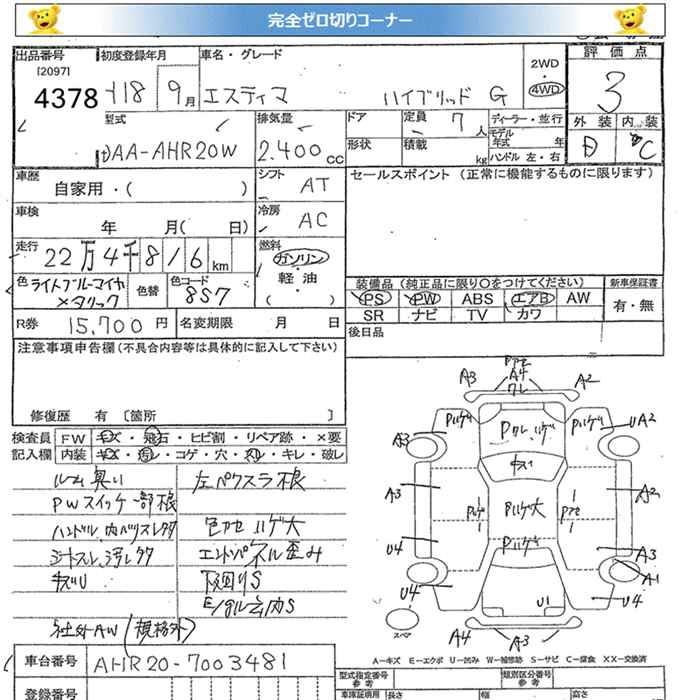 完全ゼロ切りコーナー
出品番号 初度登録年月 車名・グレード 2WD 評価点
[2097] 4378 H18 9月 エスティマ ハイブリッド G 4WD 3
型式 排気量 ドア 定員 7 人 ディーラー・並行 外装 内装
DAA-AHR20W 2.400 cc 形状 積載 kg モデル年式 年 ハンドル 左・右 D C
車歴 シフト セールスポイント (正常に機能するものに限ります)
自家用・( ) AT
車検 冷房
年 月( 日) AC
走行 燃料
22万4千816 km ガソリン・軽油・( )
色 ライトブルーマイカメタリック 色替 色コード 8S7
装備品 (純正品に限り○をつけてください) 新車保証書
PS PW ABS エアB AW 有・無
SR ナビ TV カワ
R券 15,700 円 名変期限 月 日 後日品
注意事項申告欄 (不具合内容等は具体的に記入して下さい)
修復歴 有 〔箇所 〕
検査員 FW キズ・飛石・ヒビ割・リペア跡・×要
記入欄 内装 キズ・汚レ・コゲ・穴・スレ・キレ・破レ
ルーム臭い 左ペクスラ根
PWスイッチ一部根
色アセ ハゲ大
エントパネル歪み
キズU 下回りS
E/gルーム内S
社外AW (規格外)
A3 A4 A2
A3 Pハゲ Pハゲ UA2
A3 キズ A2
Pハゲ大
U4 Pハゲ A3
A1
U4 U1 U4
スペア A4 A3
A-キズ E-エクボ U-凹み W-補修跡 S-サビ C-腐食 XX-交換済
車台番号 AHR20-7003481
型式指定番号 参考 類別区分番号 参考
登録番号 車庫証明用 長さ 幅 高さ